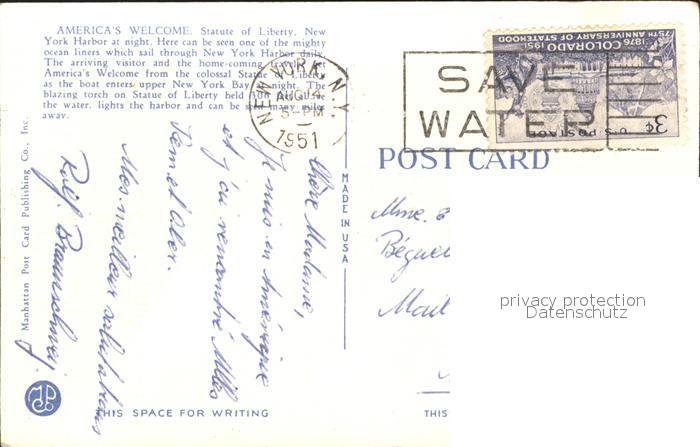 AMERICA'S WELCOME. Statue of Liberty, New
York Harbor at night. Here can be seen one of the mighty
ocean liners which sail through New York Harbor daily.
The arriving visitor and the home-coming
America's Welcome from the colossal Statue of Liberty
as the boat enters upper New York Bay night. The
blazing torch on Statue of Liberty held 300 above
the water, lights the harbor and can be seen many miles
away.
NEW YORK, N.Y.
AUG
5-PM
1951
SAVE
WATER
COLORADO
1876 1951
75TH ANNIVERSARY OF STATEHOOD
U.S. POSTAGE
3¢
POST CARD
MADE IN USA
Manhattan Post Card Publishing Co., Inc.
Chère Madame,
Je suis en Amérique
et j'ai rencontré Mlles
Mes meilleur salutations
Rolf. Braunschweig.
Mme.
Béguel
THIS SPACE FOR WRITING
THIS
privacy protection
Datenschutz